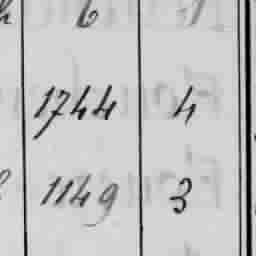 6 1
1744 4
1149 3